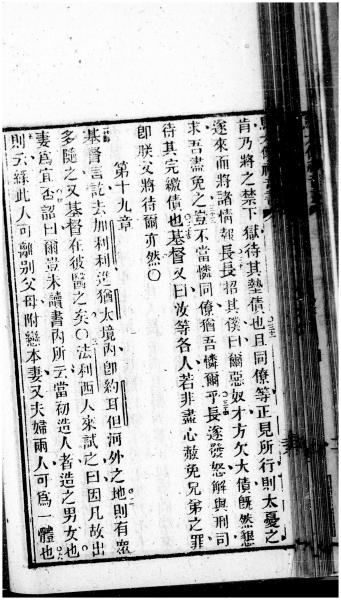 肯乃將之禁下獄待其墊債也且同僚等正見所行則太憂之
遂來而將諸情報長長招其僕曰爾惡奴才方欠大債旣然懇
求吾盡免之豈不當憐同僚猶吾憐爾乎長遂發怒解與刑司
待其完繳債也基督又曰汝等各人若非盡心赦免兄弟之罪
卽朕父將待爾亦然〇
第十九章
基督言訖去加利利進猶太境內卽約耳但河外之地則有眾
多隨之又基督在彼醫之矣〇法利西人來試之曰因凡故出
妻爲宜否認曰爾豈未讀書內所云當初造人者造之男女也
則云緣此人可離别父母附戀本妻又夫婦兩人可爲一體也